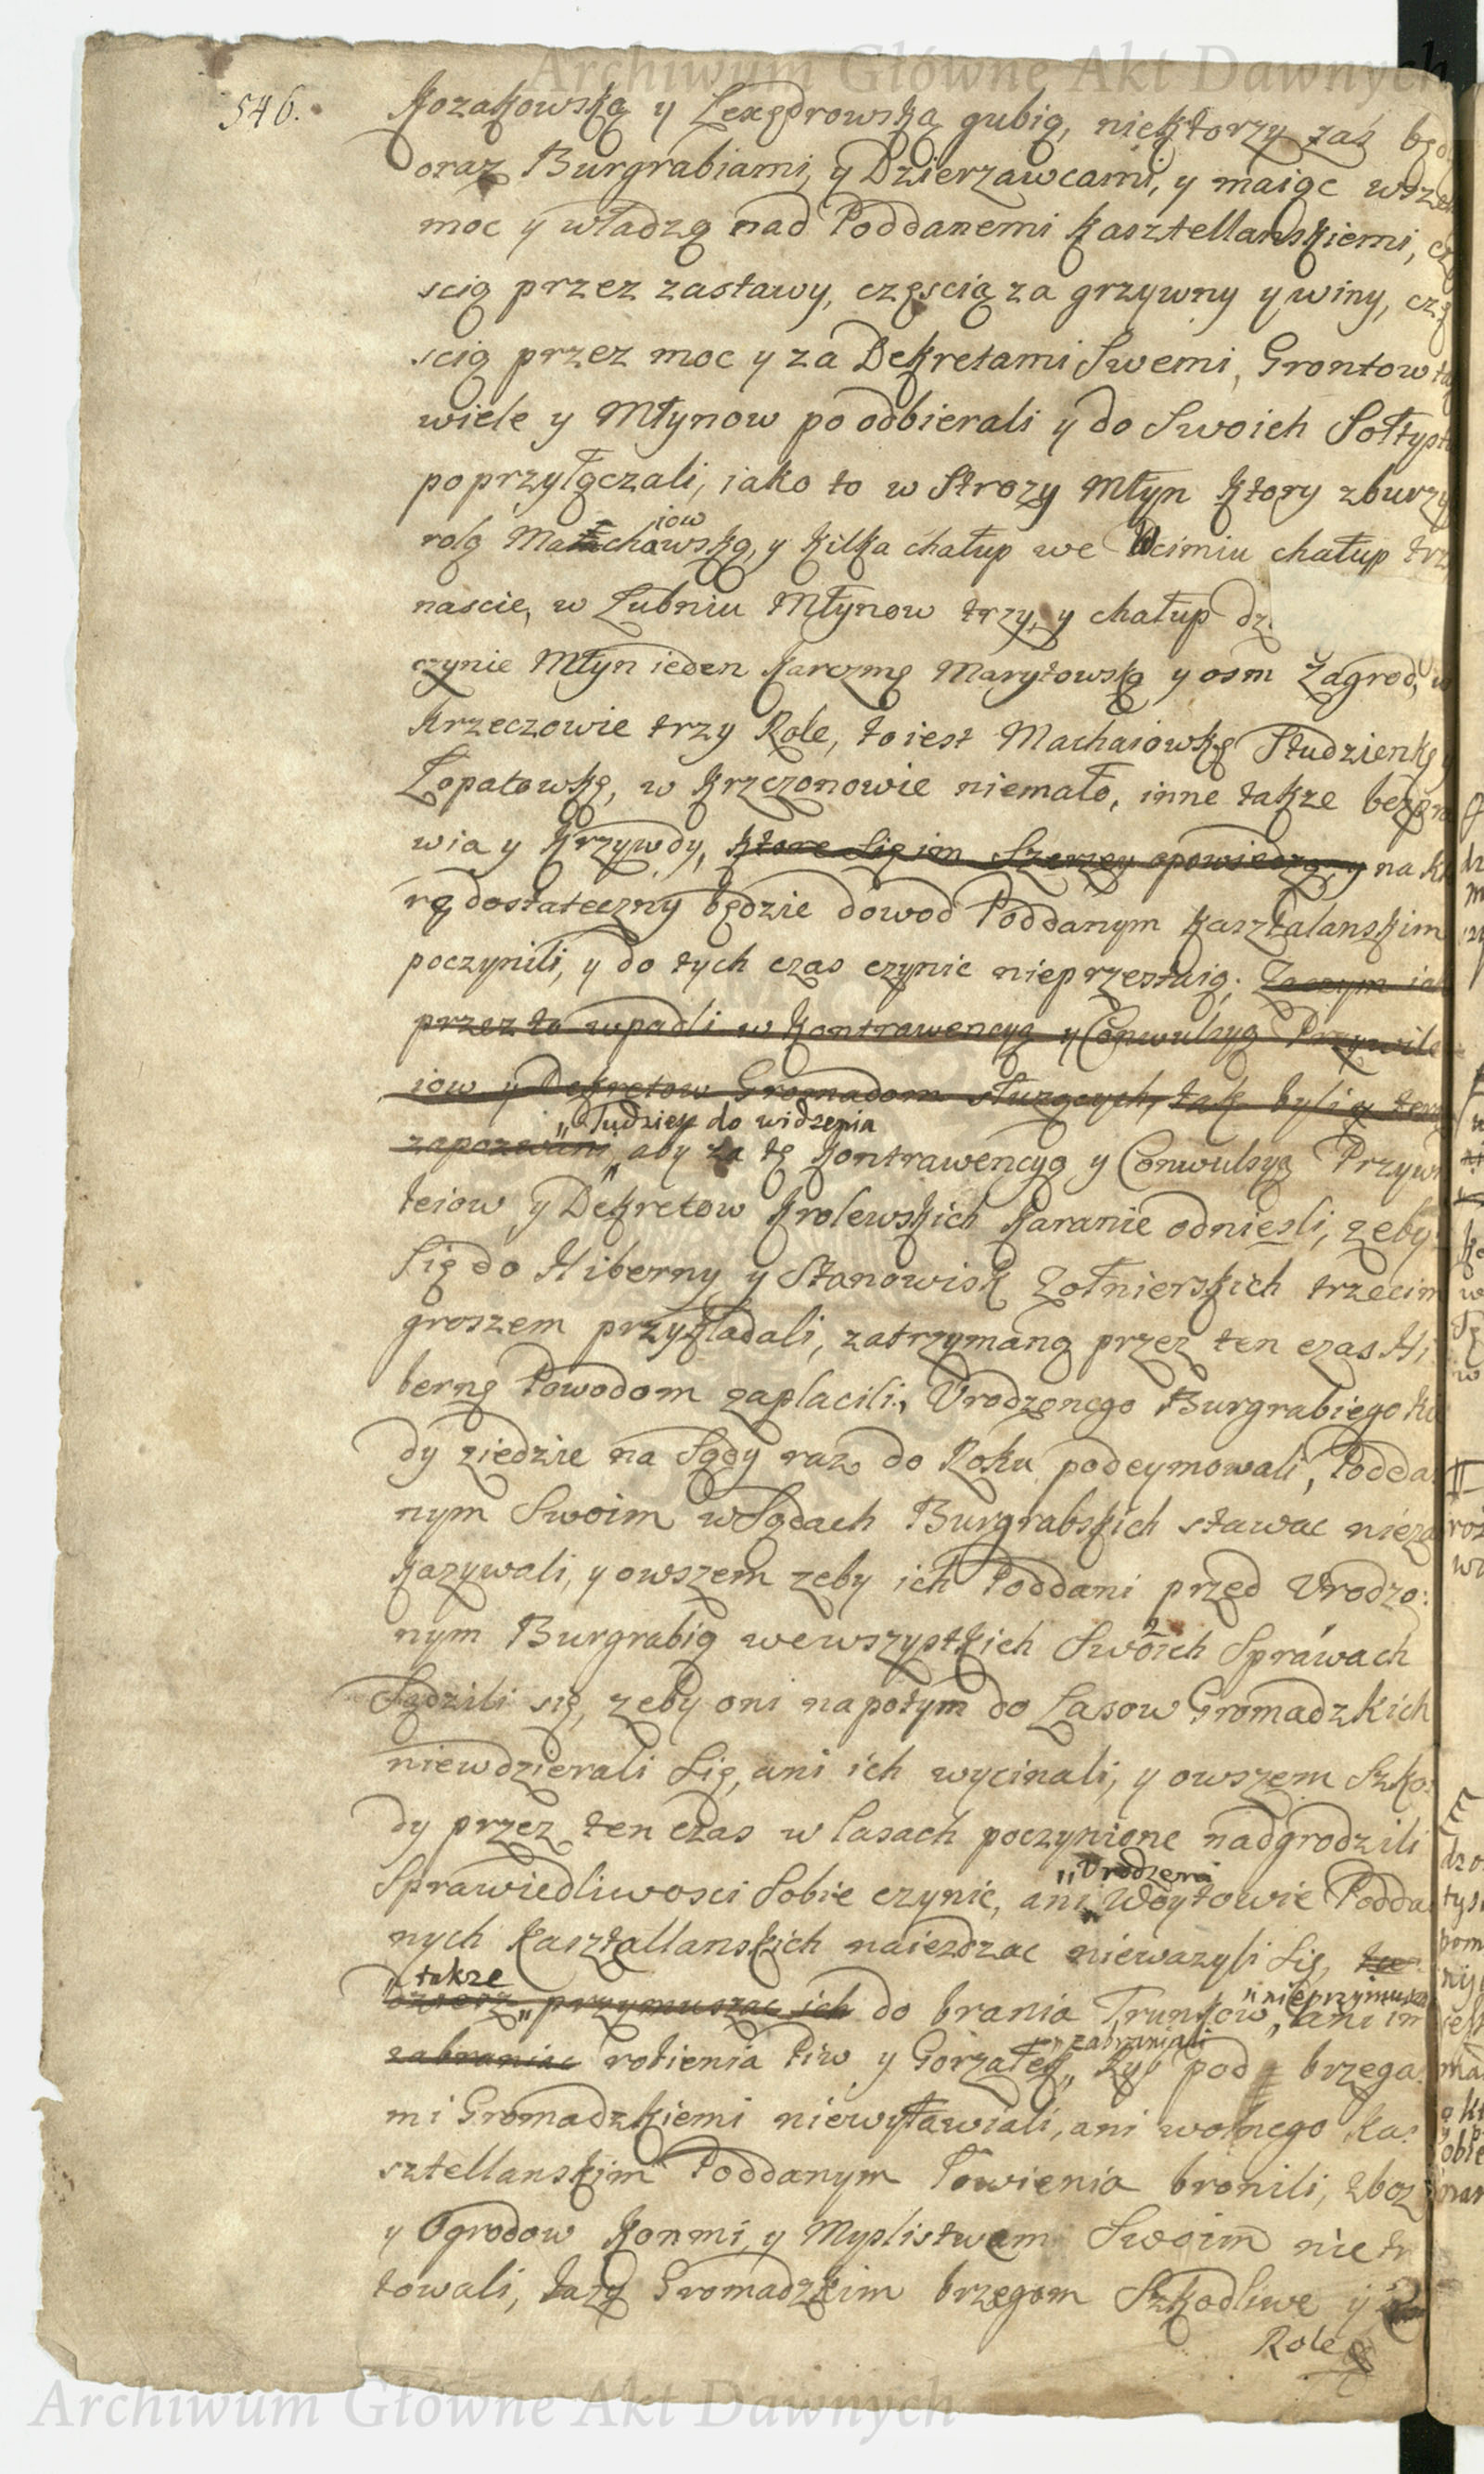 Archiwum Główne Akt Dawnych
546.
Kozakowską y Lexędrowską gubią, niektorzy zaś
oraz Burgrabiami, y Dzierzawcami, y maiąc
moc y władzą nad Poddanemi Kasztellanskiemi,
scią przez zastawy, częscią za grzywny y winy, czę
scią przez moc y za Dekretami Swemi, Grontow
wiele y Młynow po odbierali y do Swoich
poprzyłączali, iako to w Strozy Młyn ktory
iow
rolą chowską, y kilka chałup we chałup
nascie, w Lubniu Młynow trzy, y chałup
czynie Młyn ieden Karczmę Marytowską y osm Zagrod,
Krzeczowie trzy Role, to iest Machaiowkę Studzienkę
Łopatowkę, w Krzczonowie niemało, inne takze
wia y Krzywdy, ktore Się im Szerzey opowiedzą, y na
rą dostateczny będzie dowod Poddanym Kasztalanskim
poczynili, y do tych czas czynic nieprzestaią. Zaczym
przez to wpadli w Kontrawencyą y Conwulsyą Przywile
iow y Dekretow Gromadom słuzących, tak byli y
" Tudziez do widzenia
zapozwani, aby za tę Kontrawencyą y Conwulsyą
leiow y Dekretow Krolewskich Karanie odniesli, zeby
Się do Hiberny y Stanowisk Zołnierskich trzecim
groszem przykładali, zatrzymaną przez ten czas Hi
bernę Powodom zapłacili, Urodzonego Burgrabiego
dy ziedzie na Sądy raz do Roku podeymowali, Podda
nym Swoim w Sądach Burgrabskich stawac nieza
kazywali, y owszem zeby ich Poddani przed Urodzo:
nym Burgrabią we wszystkich Swoich Sprawach
Sądzili się, zeby oni napotym do Lasow Gromadzkich
niewdzierali Się, ani ich wycinali, y owszem Szko:
dy przez ten czas w lasach poczynione nadgrodzili
" Urodzeni
Sprawiedliwosci Sobie czynic, ani Woytowie Podda
nych Kasztallanskich naiezdzac niewazyli Się,
" takze
przymuszac ich do brania Trunkow, ani im
" zabraniali
zabraniac robienia Piw y Gorzałek, Ryb pod brzega
mi Gromadzkiemi niewyławiali, ani wolnego Ka:
sztellanskim Poddanym Łowienia bronili, zboz
y Ogrodow Konmi, y Myslistwem Swoim nie
towali, Gromadzkim brzegom Szkodliwe y
Role
Archiwum Główne Akt Dawnych